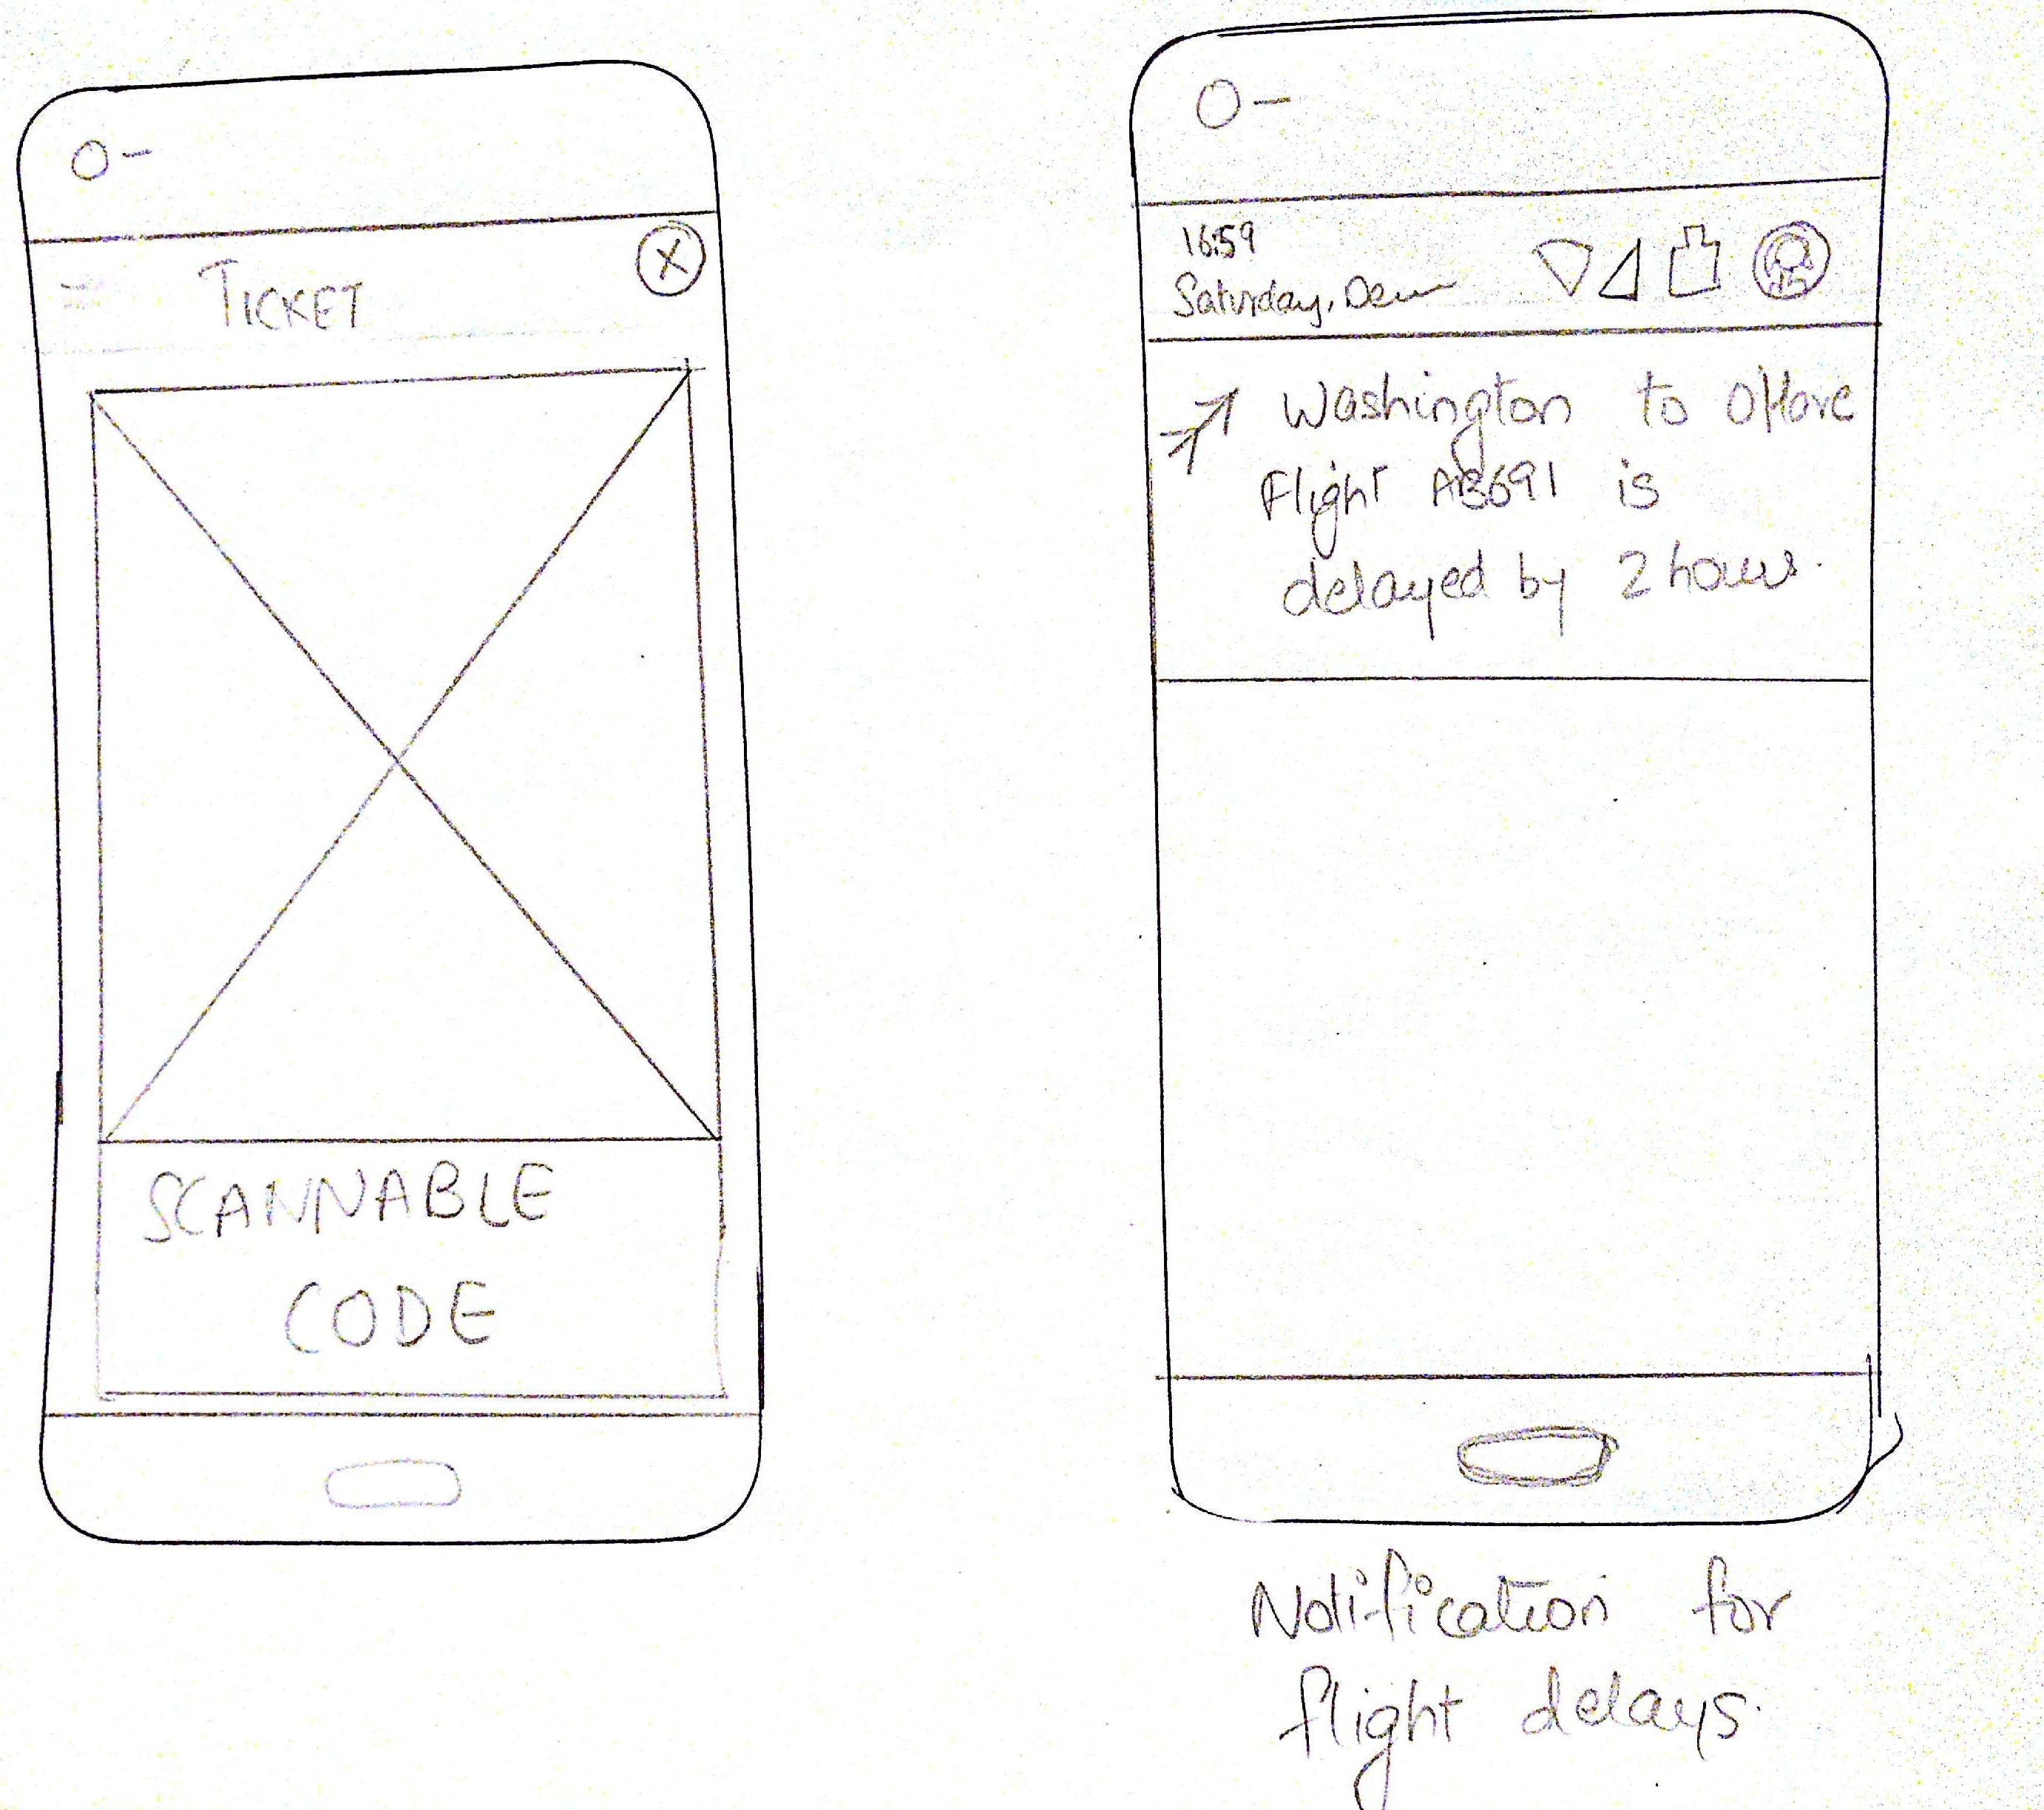 TICKET
X
SCANNABLE
CODE
16:59
Saturday,
Washington to OHare
Flight AB691 is
delayed by 2 hours.
Notification for
flight delays.